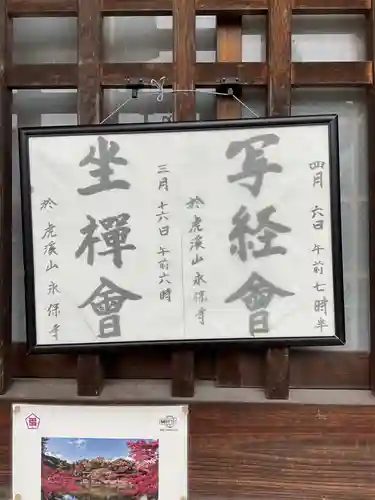 四月 六日 午前七時半
写経会
於 虎渓山 永保寺
三月 十六日 午前六時
坐禅会
於 虎渓山 永保寺